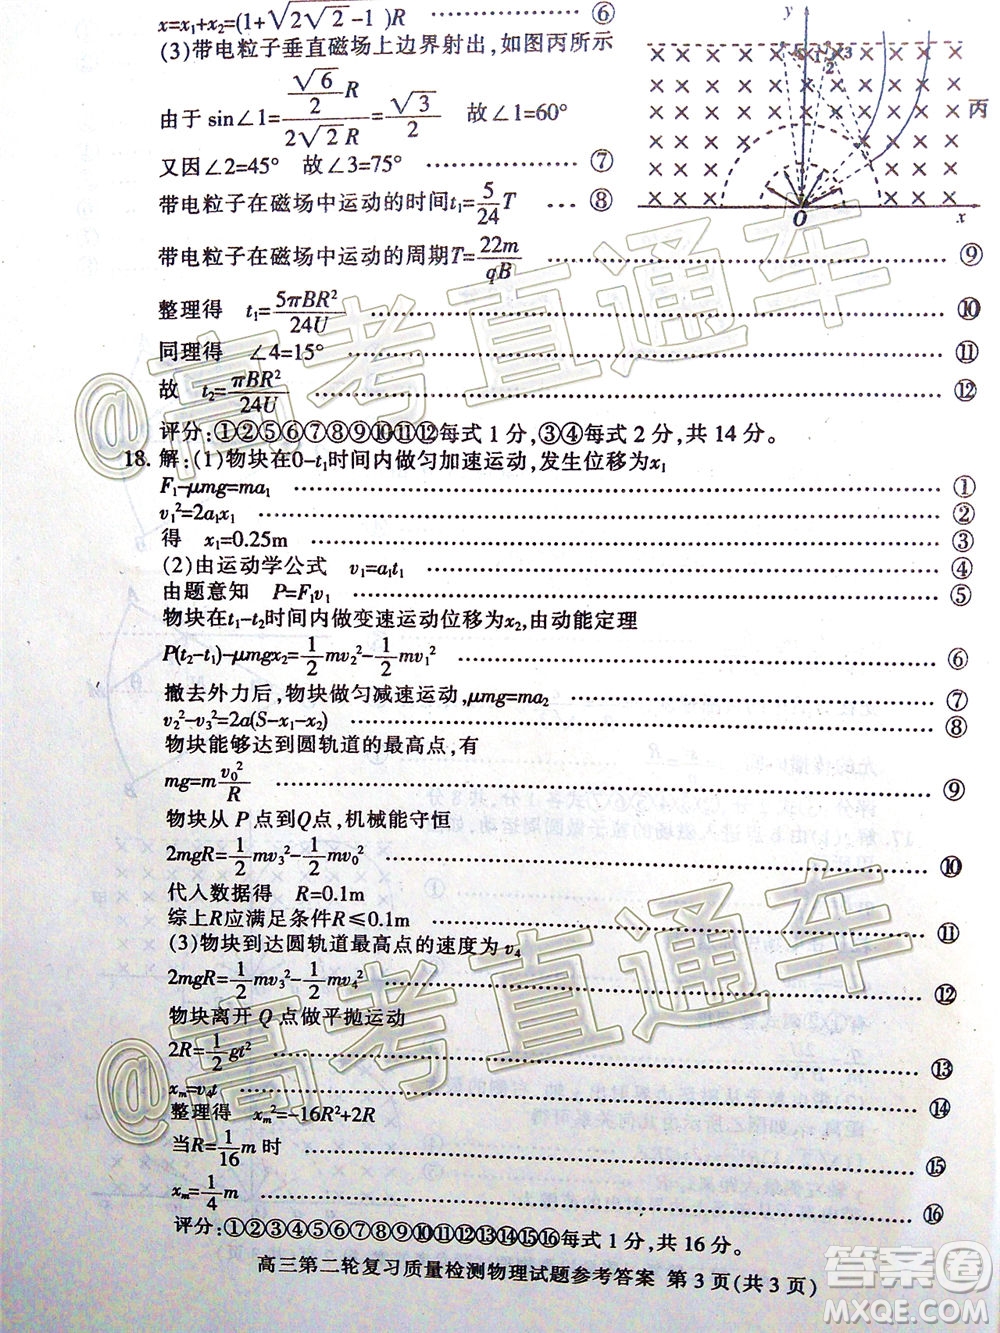 x=x₁+x₂=(1+√(2√2-1))R ⑥
(3)带电粒子垂直磁场上边界射出,如图丙所示
由于 sin∠1=(√6/2 R)/(2√2 R)=√3/2 故∠1=60°
又因∠2=45° 故∠3=75° ⑦
带电粒子在磁场中运动的时间t₁=5/24 T … ⑧
带电粒子在磁场中运动的周期T=22m/qB ⑨
整理得 t₁=5πBR²/24U ⑩
同理得 ∠4=15° ⑪
故 t₂=πBR²/24U ⑫
评分:①②⑤⑥⑦⑧⑨⑩⑪⑫每式 1 分,③④每式 2 分,共 14 分。
y
1
2
3
丙
O
x
18. 解:(1)物块在0-t₁时间内做匀加速运动,发生位移为x₁
F₁-μmg=ma₁ ①
v₁²=2a₁x₁ ②
得 x₁=0.25m ③
(2)由运动学公式 v₁=a₁t₁ ④
由题意知 P=F₁v₁ ⑤
物块在t₁-t₂时间内做变速运动位移为x₂,由动能定理
P(t₂-t₁)-μmgx₂=1/2 mv₂²-1/2 mv₁² ⑥
撤去外力后,物块做匀减速运动,μmg=ma₂ ⑦
v₂²-v₃²=2a(S-x₁-x₂) ⑧
物块能够达到圆轨道的最高点,有
mg=m v₀²/R ⑨
物块从 P 点到Q点,机械能守恒
2mgR=1/2 mv₃²-1/2 mv₀² ⑩
代入数据得 R=0.1m
综上R应满足条件R≤0.1m ⑪
(3)物块到达圆轨道最高点的速度为 v₄
2mgR=1/2 mv₃²-1/2 mv₄² ⑫
物块离开 Q 点做平抛运动
2R=1/2 gt² ⑬
xₘ=v₄t ⑭
整理得 xₘ²=-16R²+2R
当R=1/16 m 时 ⑮
xₘ=1/4 m ⑯
评分:①②③④⑤⑥⑦⑧⑨⑩⑪⑫⑬⑭⑮⑯每式 1 分,共 16 分。
高三第二轮复习质量检测物理试题参考答案 第 3 页(共 3 页)
@高考直通车
@高考直通车
答案圈
MXQE.COM